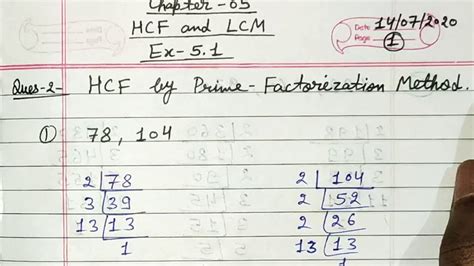 Chapter - 05
HCF and LCM
Ex-5.1
Date 14/07/2020
Page 1
Ques-2- HCF by Prime-Factorization Method.
① 78, 104
2 78 2 104
3 39 2 52
13 13 2 26
1 13 13
1